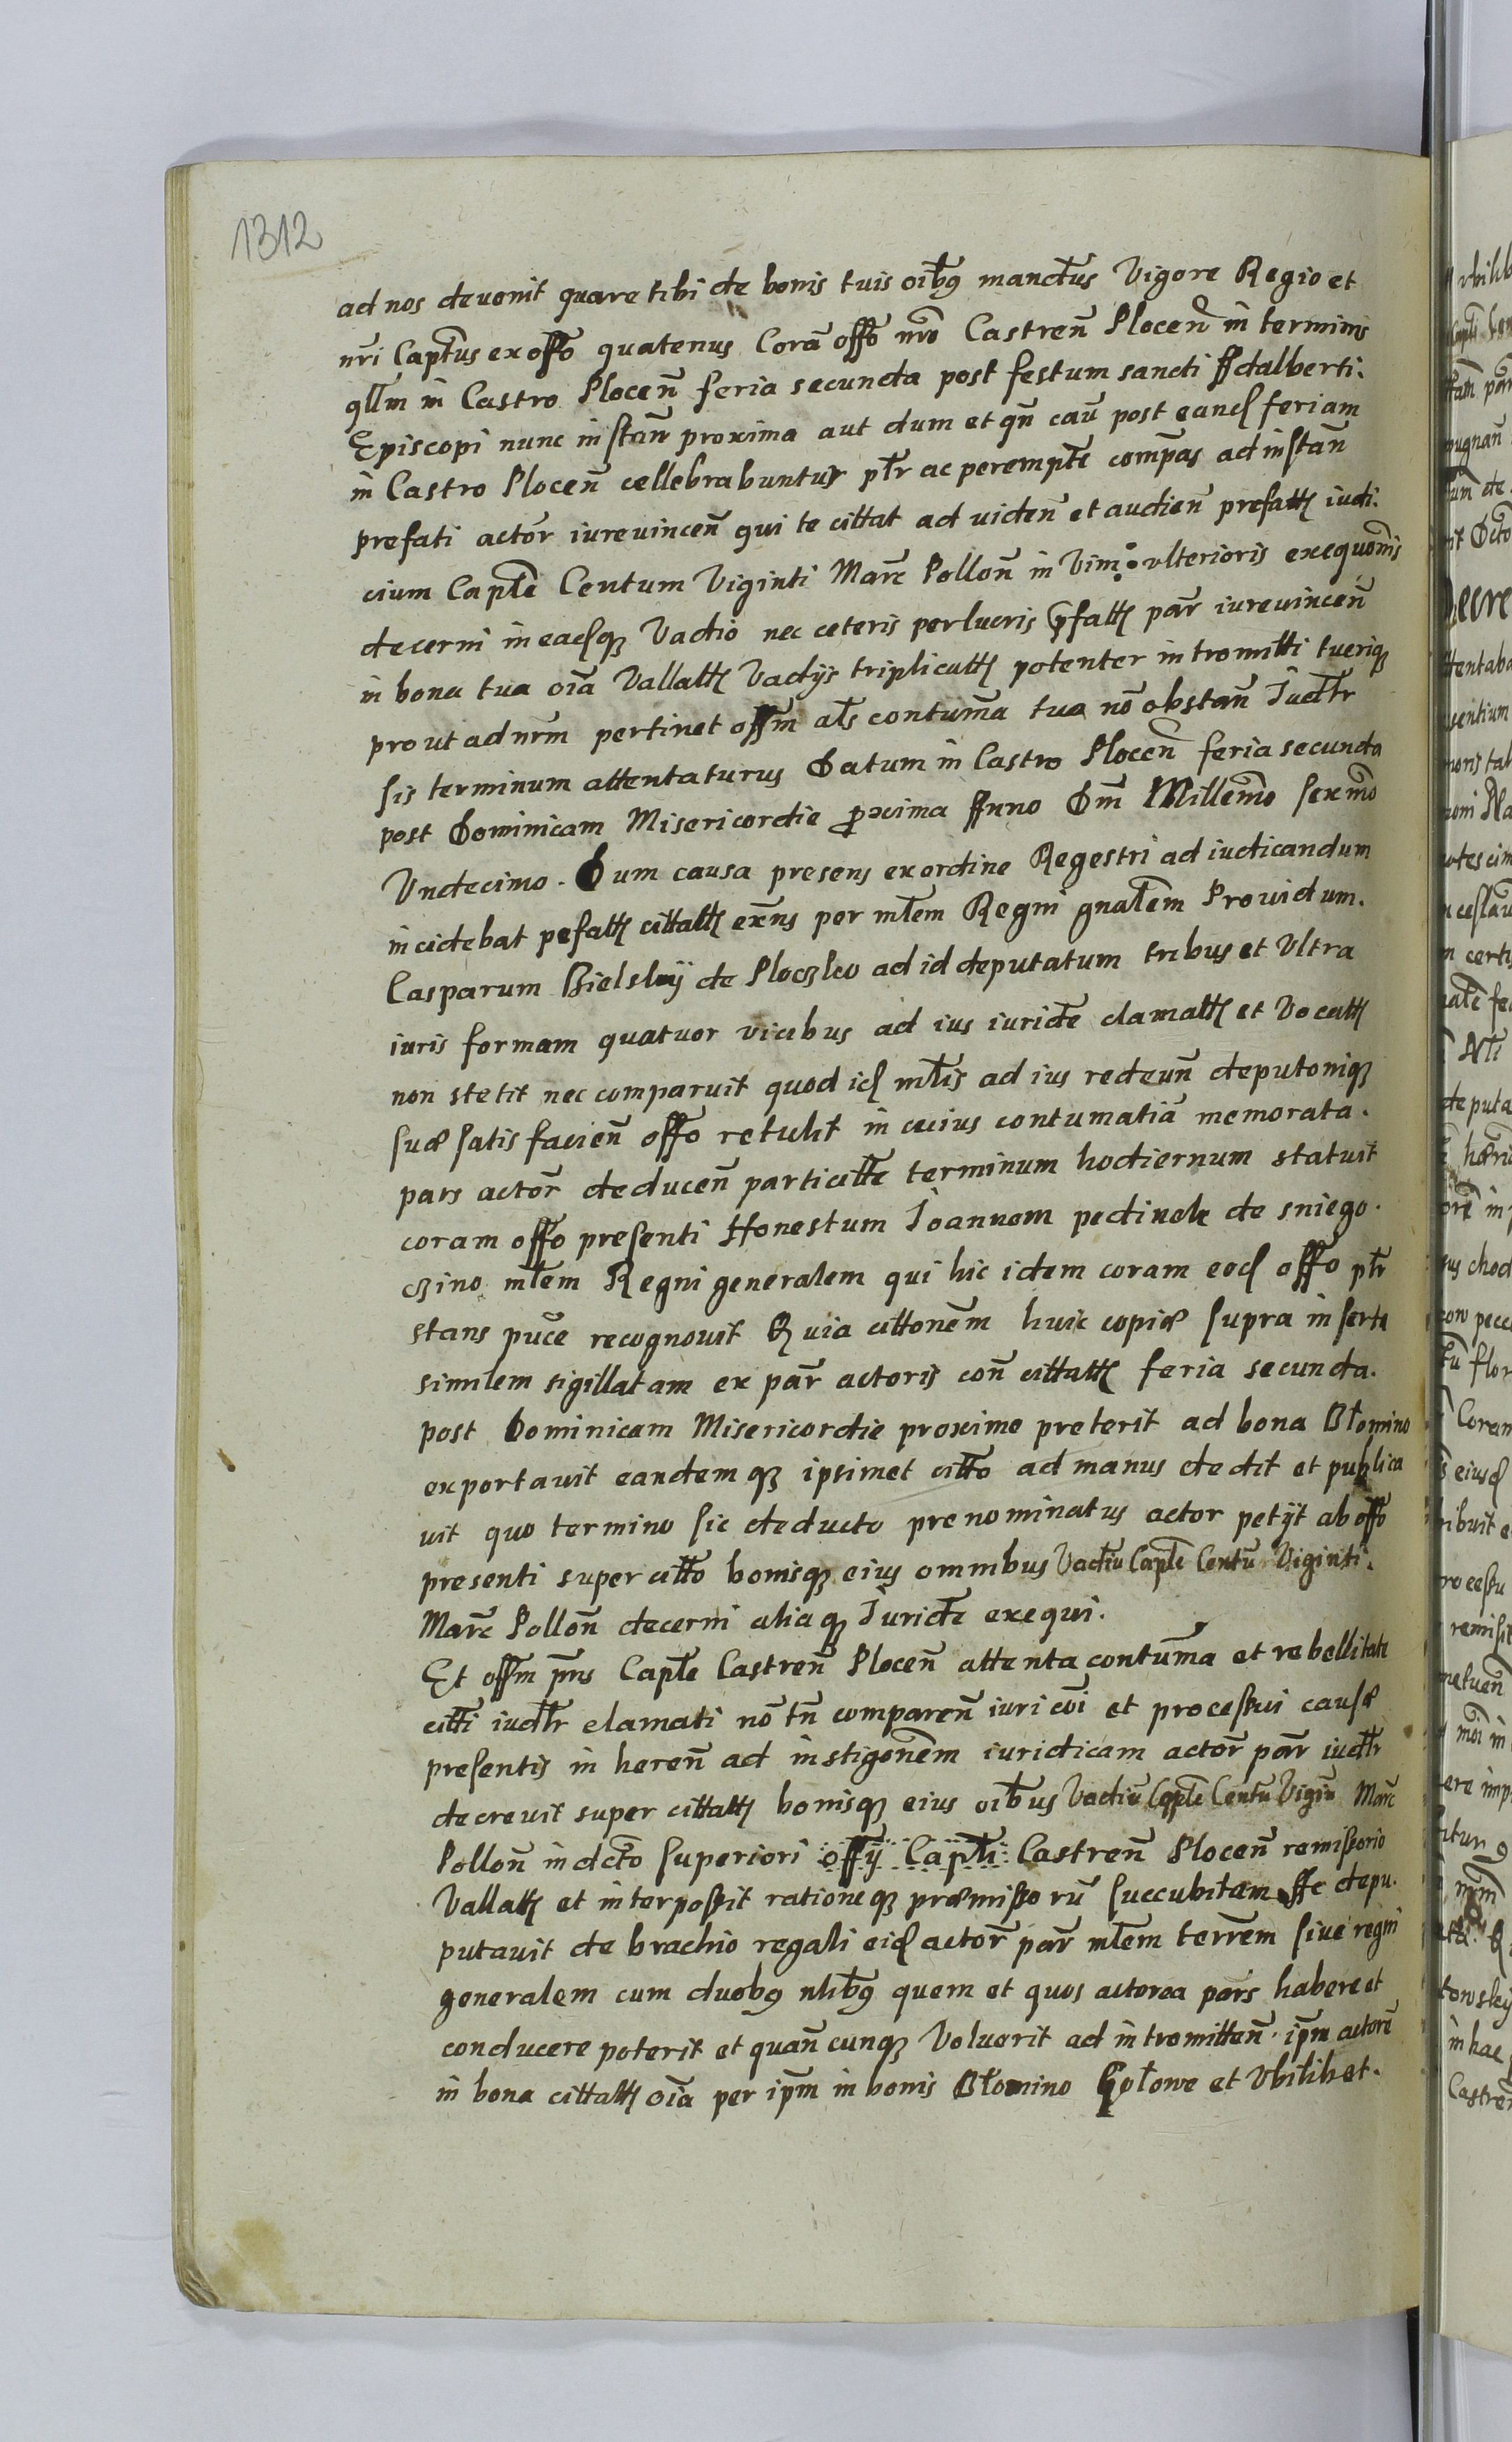 1312
ad nos devenit quare tibi de bonis tuis oib9 manctus Vigore Regio et
nri Captus ex offo quatenus Corã offo nrõ CastreñPloceñ in terminis
qllm in Castro Ploceñ feria secunda post festum sancti Adalberti.
Episcopi nunc instañ proxima aut dum et qñ cau post eand feriam
in Castro Ploceñ cellebrabuntur ptr ac perempte compas ad instañ
prefati actor iurevinceñ qui te cittat ad videñ et audieñ prefatt iudi.
cium Capte Centum Viginti Marc Polloñ in Vim ulterioris exequonis
decerni in eadq Vadio nec ceteris perlucris pfatt par iurevinceñ
in bona tua oia Vallatt Vadijs triplicatt potenter intromitti tueriq
prout ad nrm pertinet offm als contuma tua nõ obstañ Iudtr
sis terminum attentaturus Datum in Castro Ploceñ feria secunda
post Dominicam Misericordie pxima Anno Dm Millemo sexmo
Undecimo. Dum causa presens ex ordine Regestri ad iudicandum
incidebat pefatt cittatt exns per mlem Regni gnalem Providum.
Casparum Bielsky de Ploczko ad id deputatum tribus et Ultra
iuris formam quatuor vicibus ad ius iuridte clamatt et Vocatt
non stetit nec comparuit quod id mlis ad ius redeuñ deputoniq
suæ satis facieñ offo retulit in cuius contumatiã memorata.
pars actor deduceñ particitte terminum hodiernum statuit
coram offo presenti Honestum Ioannem pedinek de sniego.
czino mlem Regni generalem qui hic idem coram eod offo ptr
stans puce recognovit Quia cittonem huic copiæ supra inserta
similem sigillatam ex par actoris coñ cittatt feria secunda.
post Dominicam Misericordie proxime preterit ad bona Błomino
exportavit eandemq ipsimet citto ad manus dedit et publica
vit quo termino sic deducto prenominatus actor petijt ab offo
presenti super citto bonisq eius omnibus Vadiu Capte Centu Viginti.
Marc Polloñ decerni aliaq Iuridte exequi.
Et offm pns Capte Castreñ Ploceñ attenta contuma et rebellitate
citti iudtr clamati nõ tñ compareñ iuri coi et processui causæ
presentis inhereñ ad instigonem iuridicam actor par iudtr
decrevit super cittatt bonisq eius oibus Vadiu Capte Centu Vigin Marc
Polloñ in dcto superiori offij Capti Castreñ Ploceñ remissorio
Vallatt et interpossit rationeq præmissoru succubitam Ac depu.
putavit de brachio regali eid actor par mlem terrem sive regni
generalem cum duob9 nlib9 quem et quos actorea pars habere et
conducere poterit et quañcunq Voluerit ad intromitteñ ipm actore
in bona cittatt oia per ipm in bonis Błomino Gołowe et Ubilibet.